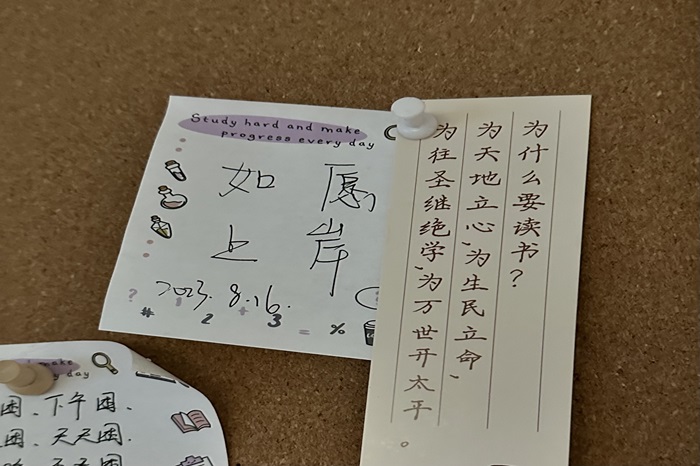 Study hard and make
progress every day
如愿
上岸
2023.8.16.
? # 2 + 3 = %
为什么要读书？
为天地立心，为生民立命，
为往圣继绝学，为万世开太平。
make
day
困、下午困、
困、天天困、